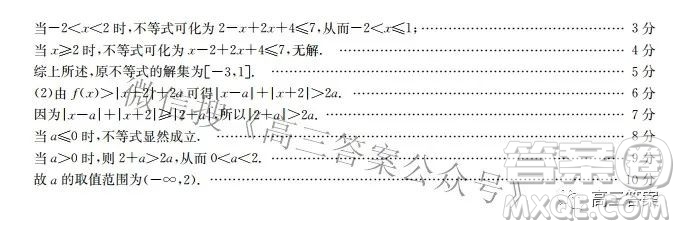 当-2<x<2时,不等式可化为2-x+2x+4≤7,从而-2<x≤1; 3分
当x≥2时,不等式可化为x-2+2x+4≤7,无解. 4分
综上所述,原不等式的解集为[-3,1]. 5分
(2)由f(x)>|x+2|+2a可得|x-a|+|x+2|>2a. 6分
因为|x-a|+|x+2|≥|2+a|,所以|2+a|>2a. 7分
当a≤0时,不等式显然成立. 8分
当a>0时,则2+a>2a,从而0<a<2. 9分
故a的取值范围为(-∞,2). 10分
微信搜《高三答案公众号》
答案圈
高三答案